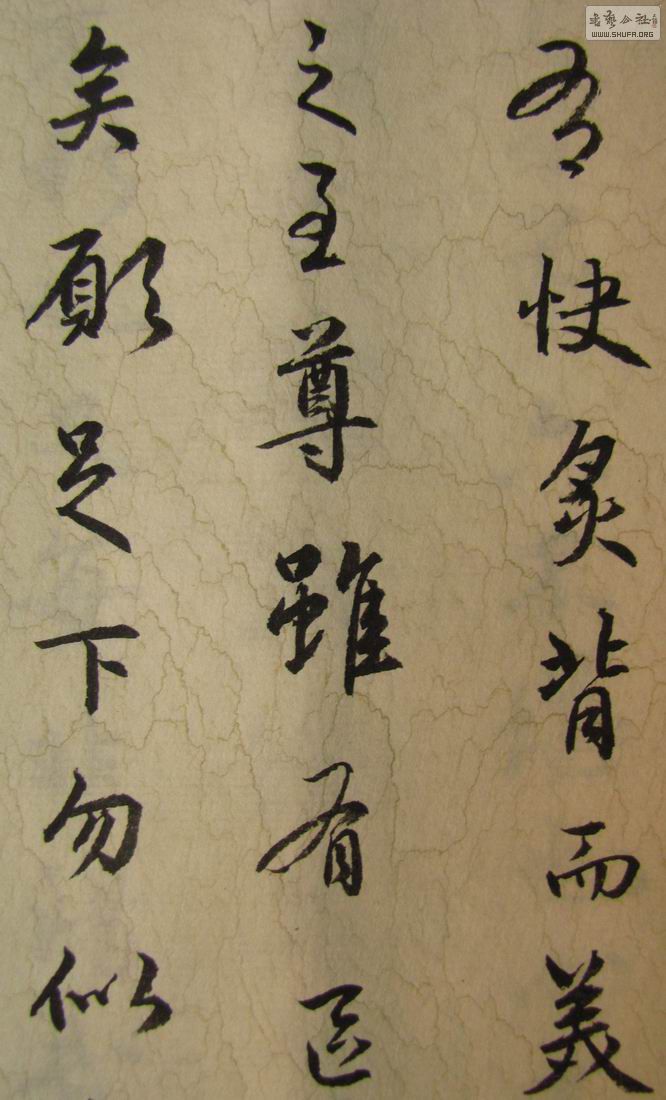 有快炙背而美
之至尊雖有區
矣願足下勿似
書藝公社
WWW.SHUFA.ORG